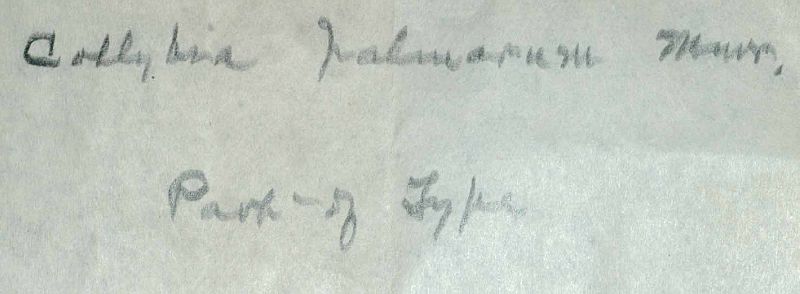 Collybia palmarum Murr.
Part of Type